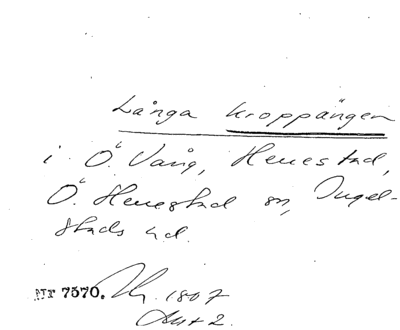 Långa Kroppängen
i Ö. Vång, Henestad,
Ö. Henestad sn, Ingel-
stads hd.
Nr 7570. 1807